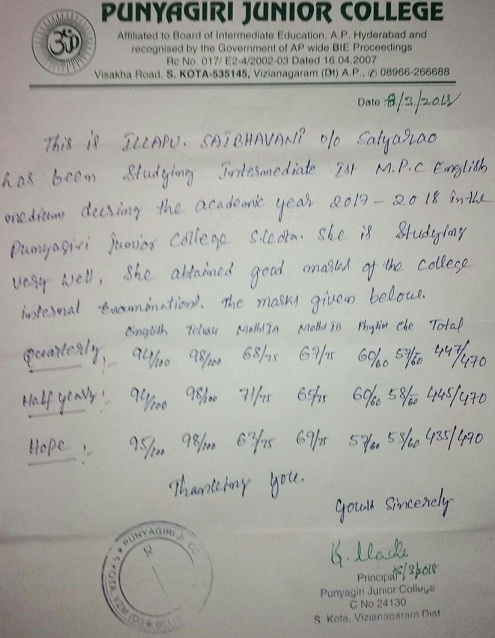 PUNYAGIRI JUNIOR COLLEGE
Affiliated to Board of Intermediate Education, A.P. Hyderabad and
recognised by the Government of AP wide BIE Proceedings
Rc No. 017/ E2-4/2002-03 Dated 16.04.2007
Visakha Road, S. KOTA-535145, Vizianagaram (Dt) A.P., ✆ 08966-266688
Date : 8/3/2018
This is ILLAPU. SAIBHAVANI D/o Satyarao
has been Studying Intermediate Ist M.P.C English
medium during the academic year 2017-2018 in the
Punyagiri Junior College S.kota. She is Studying
very well, She attained good marks of the college
internal Examinations. The marks given below.
English Telugu Maths IA Maths IB Physics Che Total
Quarterly :- 94/100 98/100 68/75 69/75 60/60 57/60 447/470
Half yearly :- 94/100 98/100 71/75 65/75 60/60 58/60 445/470
Hope :- 95/100 98/100 63/75 69/75 57/60 53/60 435/470
Thanking you.
Yours Sincerely
Principal
Punyagiri Junior College
C No 24130
S Kota, Vizianagaram Dist
PUNYAGIRI